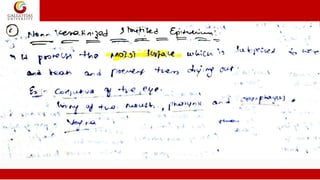 GALGOTIAS
UNIVERSITY
Non Keratinized Stratified Epithelium:
It protects the moist surface which is subjected to wear
and tear and prevent them drying out.
Ex:- Conjuctiva of the eye.
lining of the mouth, pharynx and esophagus.